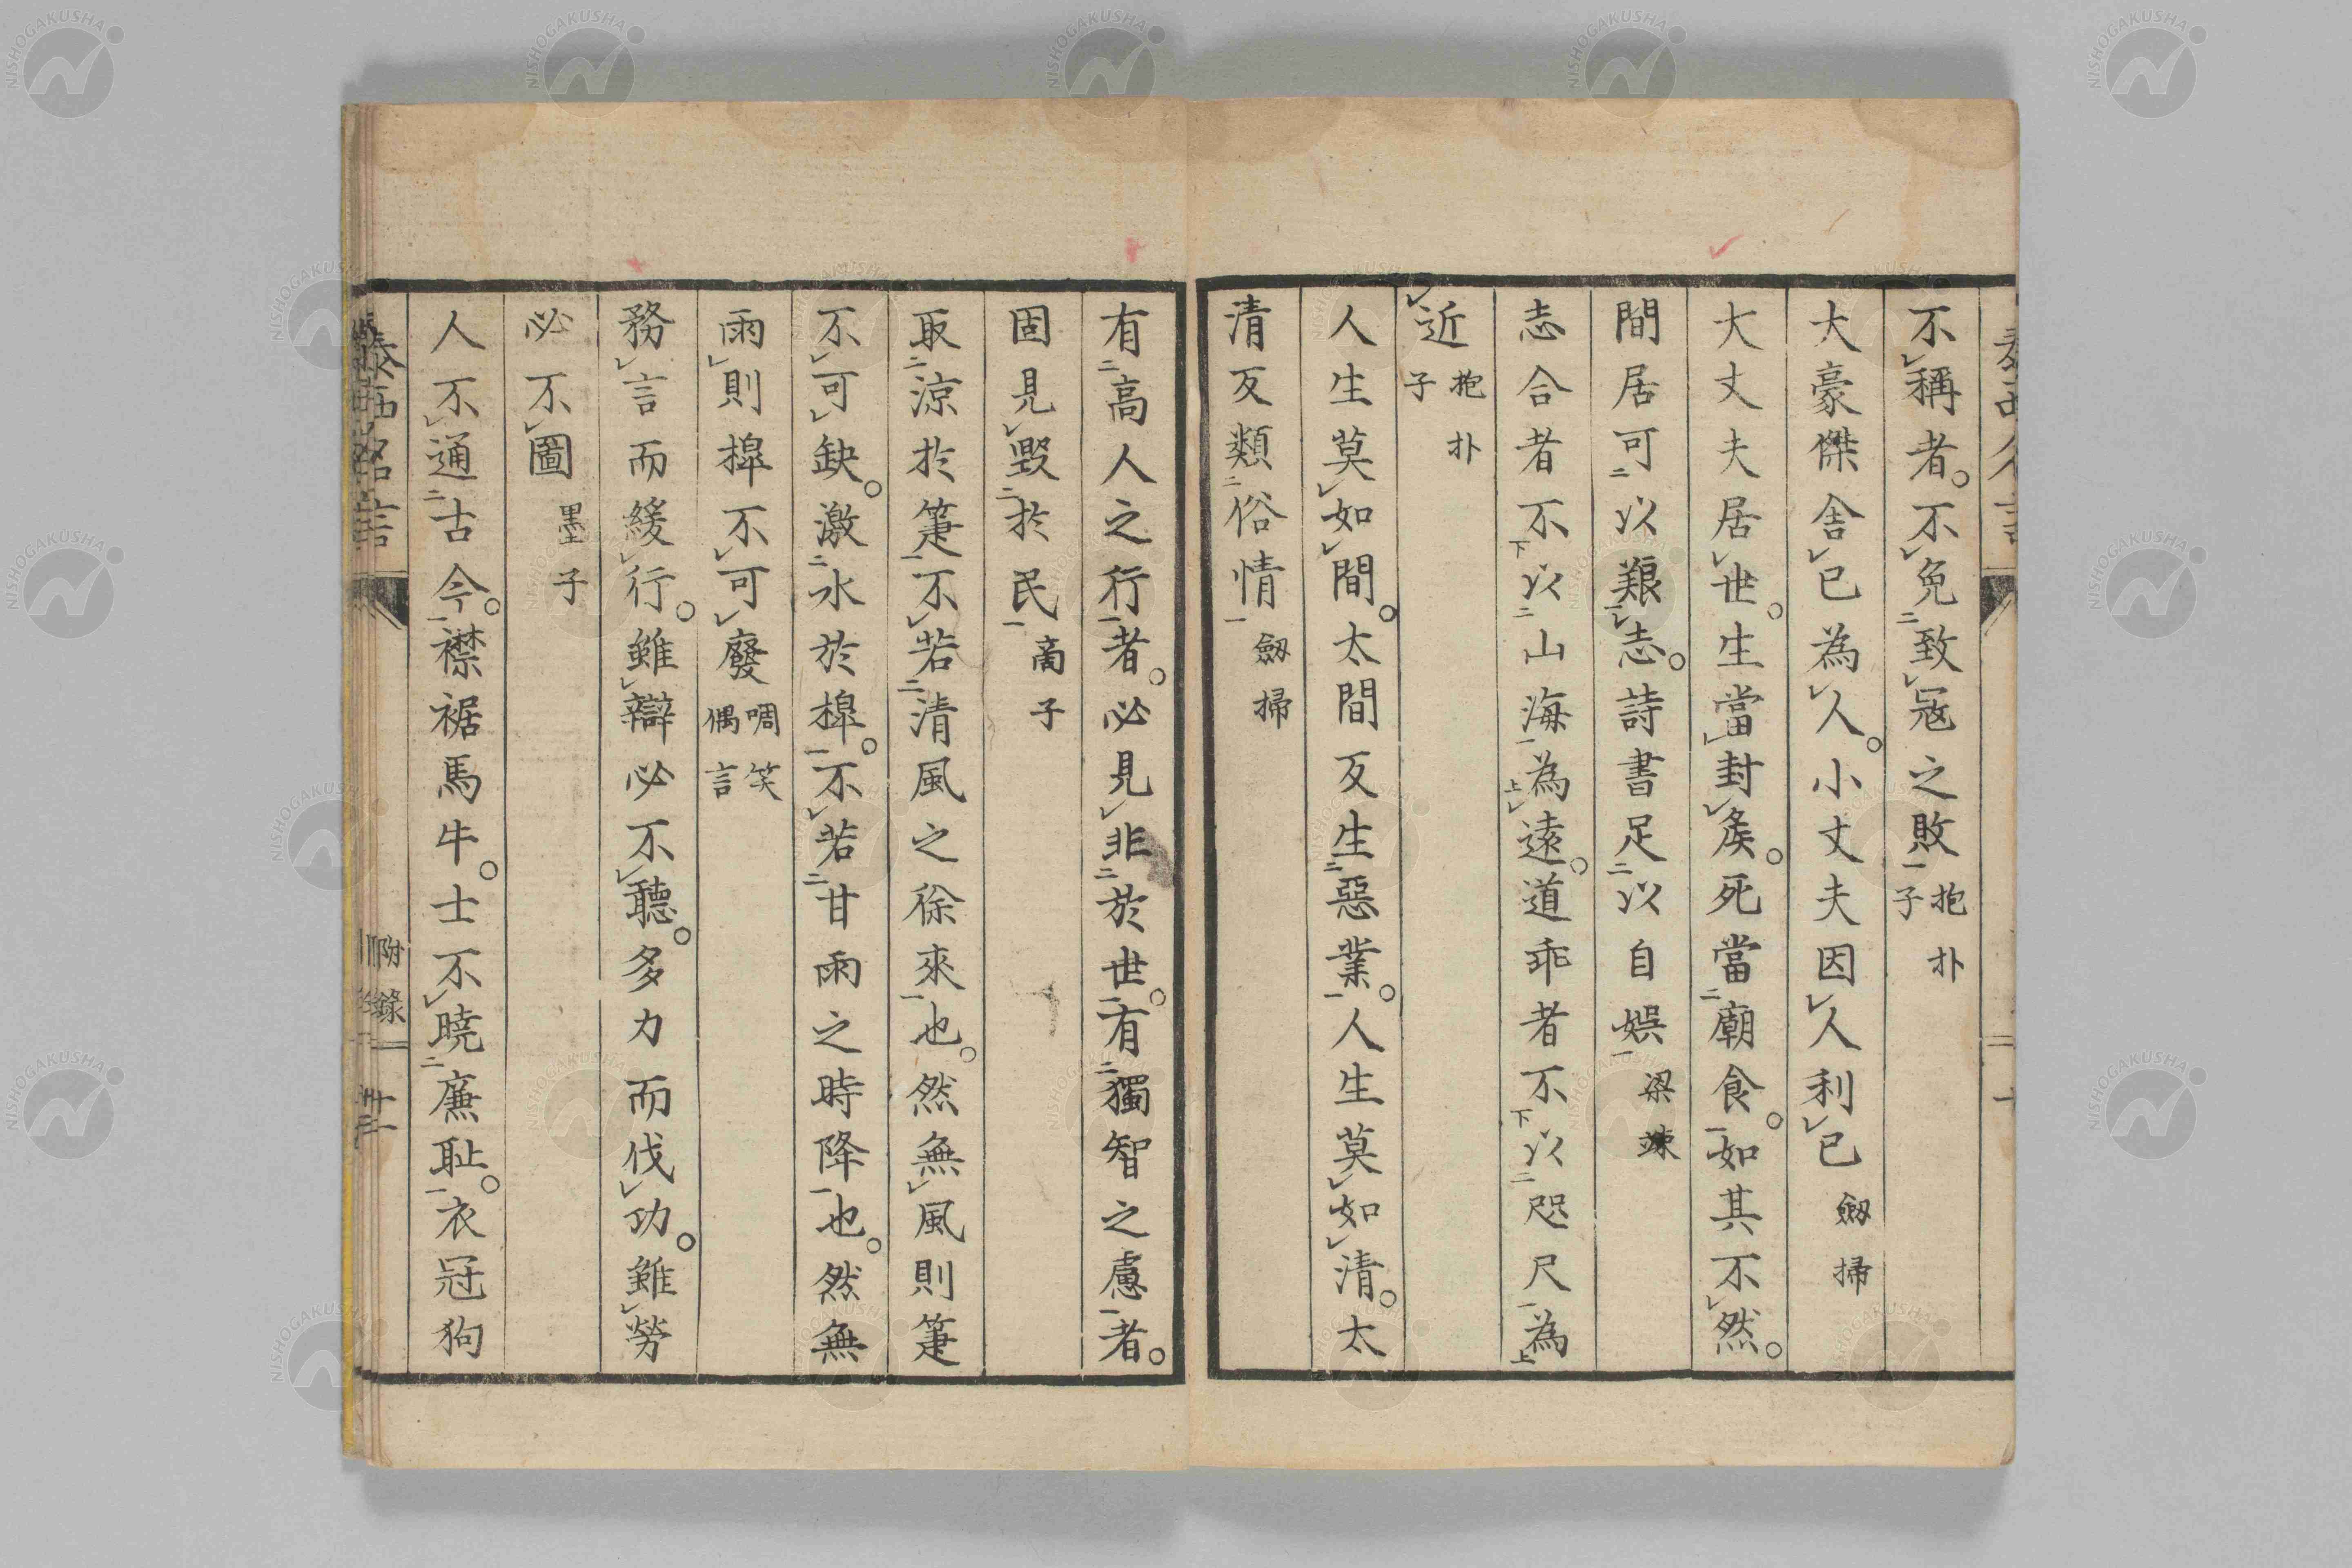 不稱者。不免致冦之敗 抱朴子
大豪傑舎已為人。小丈夫因人利已 劔掃
大丈夫居世。生當封侯。死當廟食。如其不然。
間居可以艱志。詩書足以自娯 梁竦
志合者不以山海為遠。道乖者不以咫尺為
近 抱朴子
人生莫如間。太間反生惡業。人生莫如清。太
清反類俗情 劔掃
有高人之行者。必見非於世。有獨智之慮者。
固見毀於民 商子
取涼於箑不若清風之徐來也。然無風則箑
不可缺。激水於槹。不若甘雨之時降也。然無
雨則槹不可廢 啁笑偶言
務言而緩行。雖辯必不聽。多力而伐功。雖勞
必不圖 墨子
人不通古今。襟裾馬牛。士不曉廉恥。衣冠狗
附錄